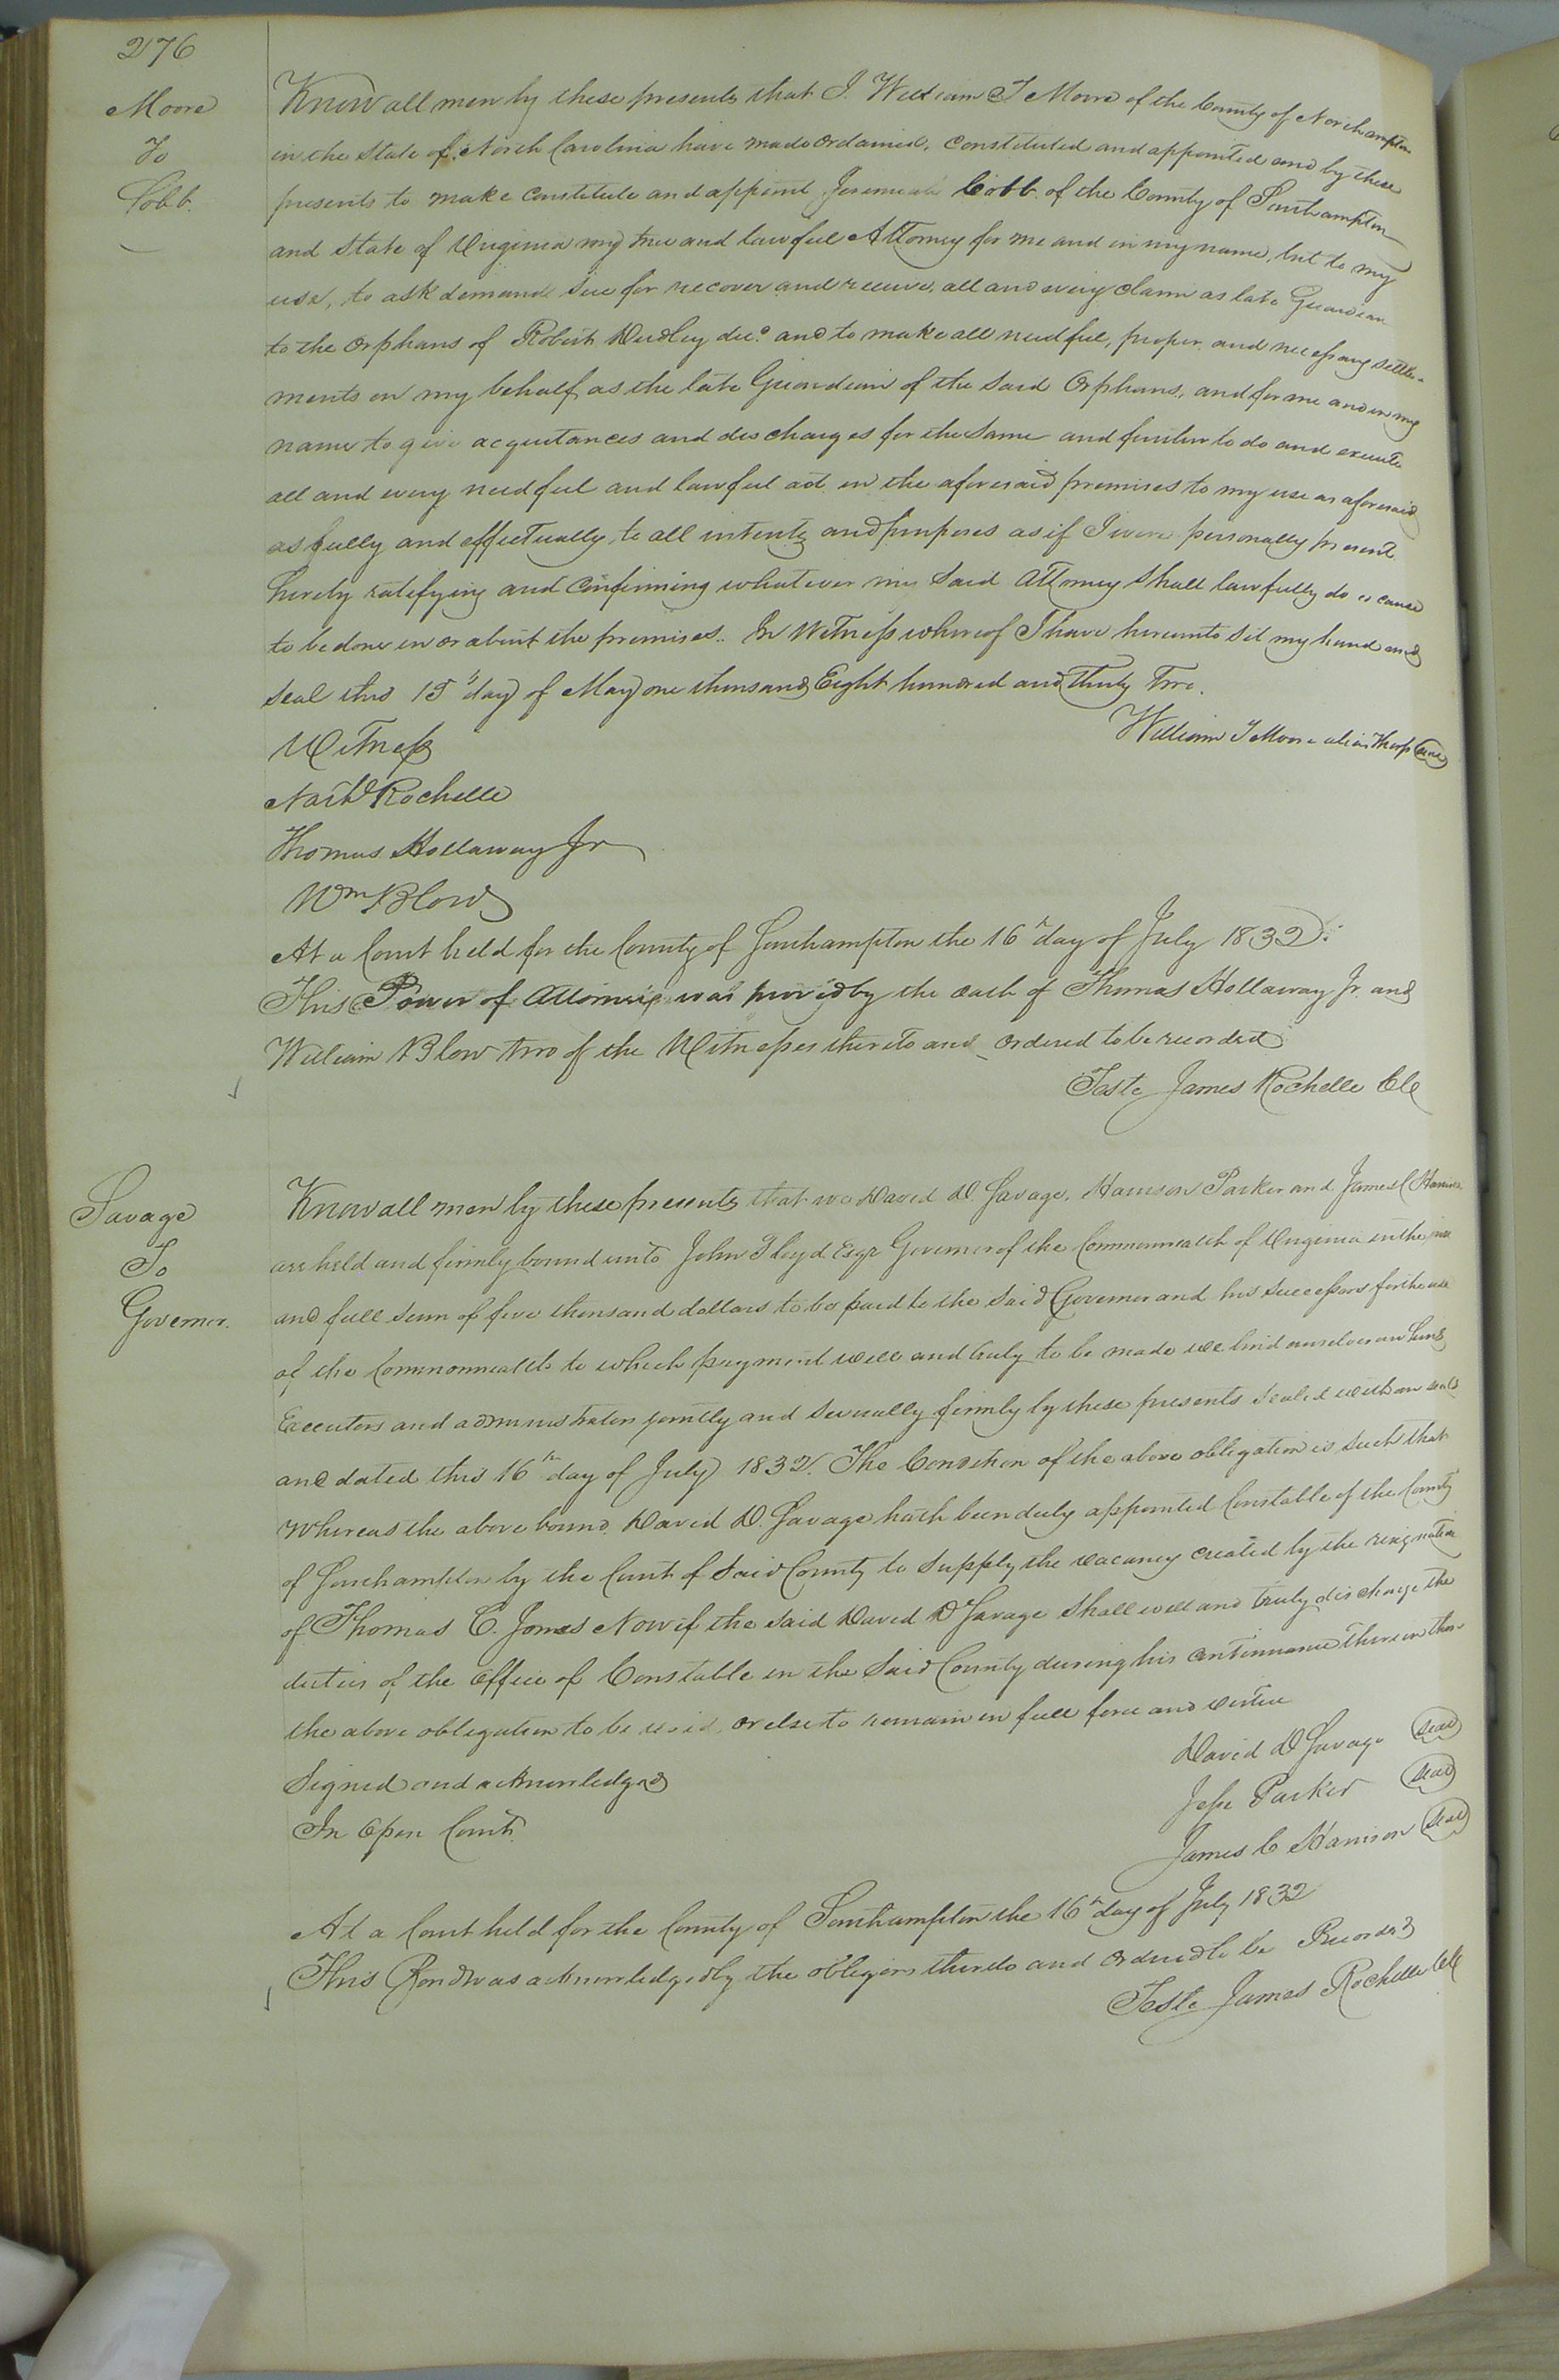 276
Moore
To
Cobb.
Know all men by these presents that I. William T Moore of the County of Northampton
in the State of North Carolina have made ordained, constituted and appointed and by these
presents to make constitute and appoint Jeremiah Cobb. of the County of Southampton
and State of Virginia my true and lawful Attorney for me and in my name, but to my
use, to ask demand sue for recover and receive, all and every claim as late Guardian
to the Orphans of Robert Dudley decd. and to make all needful, proper, and necessary settle-
ments on my behalf as the late Guardian of the said Orphans, and for me and in my
name to give acquitances and discharges for the same and further to do and execute
all and every needful and lawful act in the aforesaid premises to my use as aforesaid
as fully and effectually to all intents and purposes as if I were personally present
hereby ratifying and confirming whatever my said Attorney shall lawfully do or cause
to be done in or about the premises.. In Witness whereof I have hereunto set my hand and
seal this day of May one thousand Eight hundred and Thirty Two.
William T Moore alias Thorp (seal)
Witness
Rochelle
Thomas Hollaway Jr
Wm Blow
At a Court held for the County of Southampton the 16h day of July 1832.
This Power of Attorney was proved by the oath of Thomas Hollaway Jr. and
William Blow two of the Witnesses thereto and ordered to be recorded
Teste James Rochelle Clk
Savage
To
Governor.
Know all men by these presents that we David D. Savage, Harrison Parker and James C Harrison
are held and firmly bound unto John Floyd Esqr Governor of the Commonwealth of Virginia in the just
and full sum of five thousand dollars to be paid to the said Governor and his successors for the use
of the Commonwealth to which payment well and truly to be made we bind ourselves our heirs
Executors and administrators jointly and severally firmly by these presents sealed with our seals
and dated this 16th day of July 1832. The Condition of the above obligation is such that
whereas the above bound David D. Savage hath been duly appointed Constable of the County
of Southampton by the Court of said County to supply the vacancy created by the resignation
of Thomas C. Jones Now if the said David D Savage shall well and truly discharge the
duties of the office of Constable in the said County during his continuance therein then
the above obligation to be void, or else to remain in full force and virtue
David D Savage (seal)
Signed and acknowledged
Jesse Parker (seal)
In Open Court.
James C Harrison (seal)
At a Court held for the County of Southampton the 16h day of July 1832
This Bond was acknowledged by the obligors thereto and ordered to be Recorded
Teste James Rochelle Clk